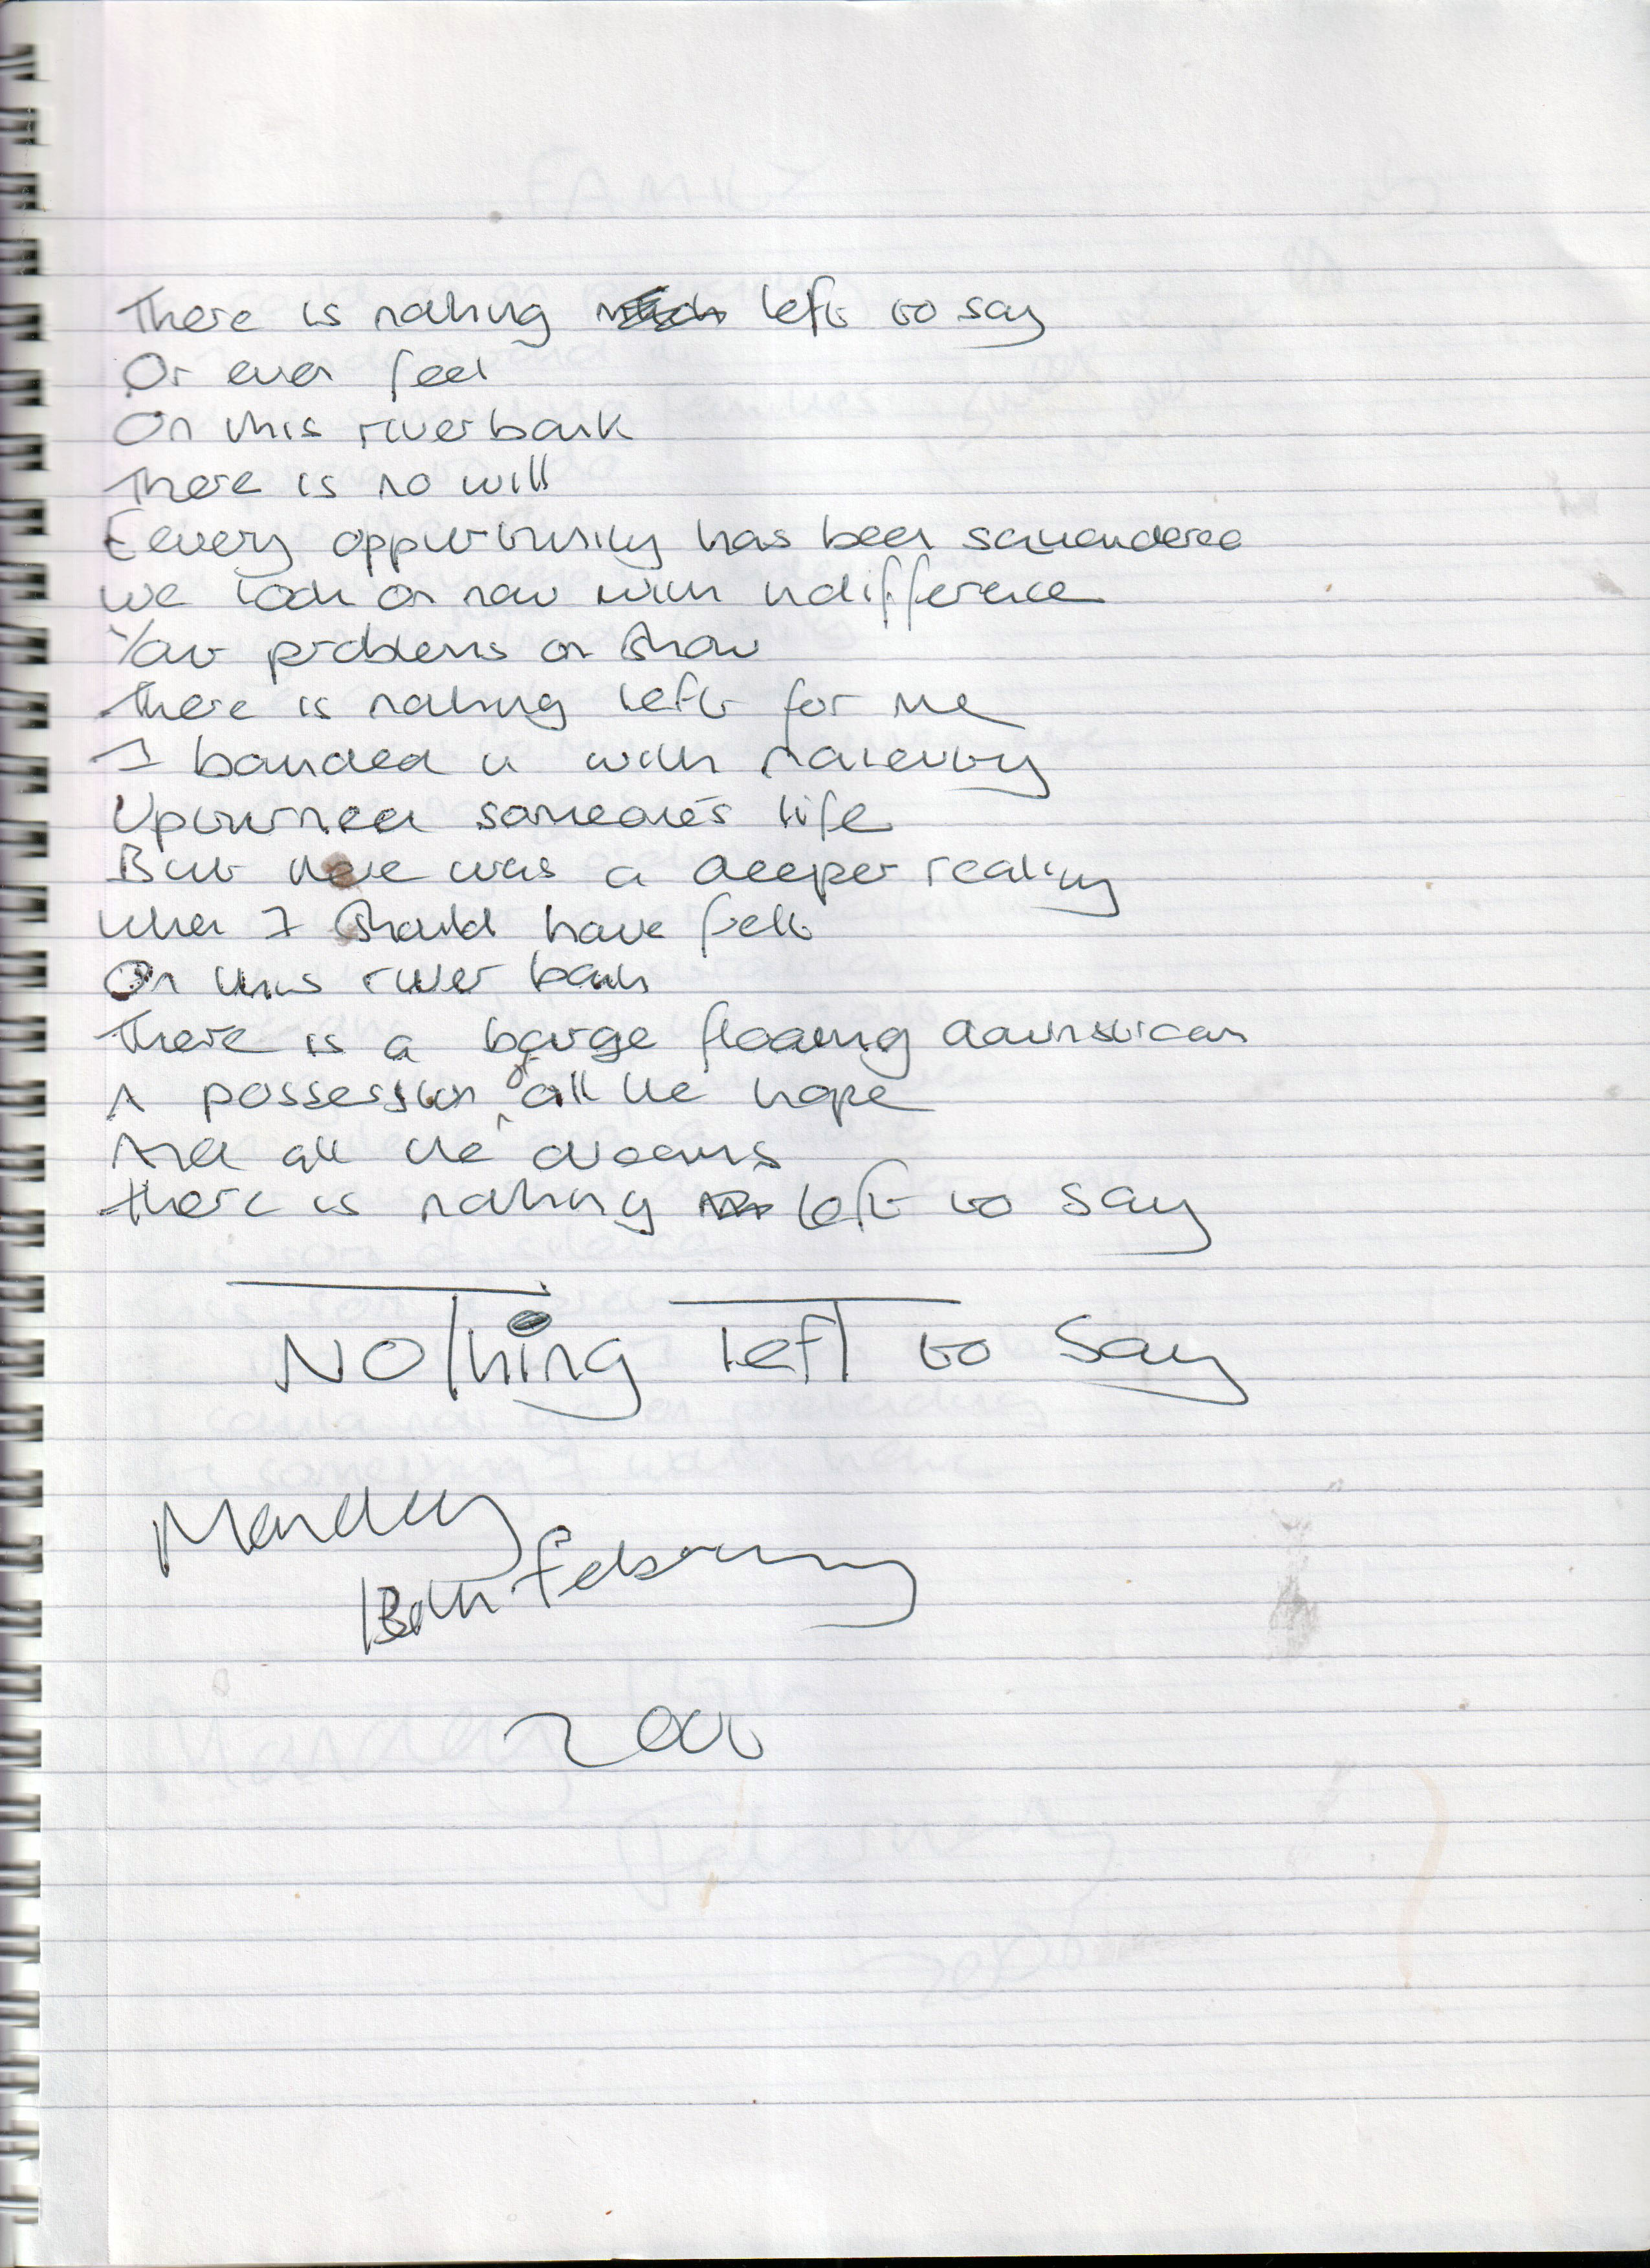 There is nothing left to say
Or even feel
On this riverbank
There is no will
Eevery oppurtunity has been squandered
We look on now with indifference
Your problems on show
There is nothing left for me
I handled it with
Upturned someone's life
But there was a deeper reality
When I should have felt
On this river bank
There is a barge floating downstream
A possession of all the hope
And all the dreams
There is nothing left to say
NOthing left to Say
Monday
13th February
2006